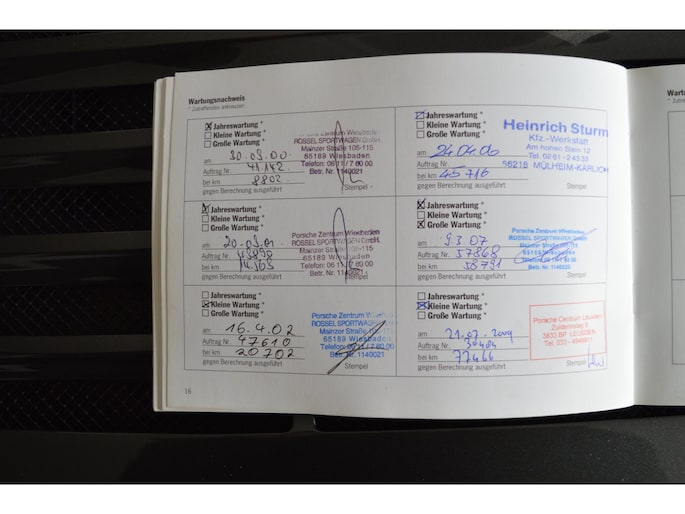 Wartungsnachweis
* Zutreffendes ankreuzen
Jahreswartung *
Kleine Wartung *
Große Wartung *
am 30.03.00
Auftrag Nr. 41142
bei km 8802
gegen Berechnung ausgeführt
Porsche Zentrum Wiesbaden
ROSSEL SPORTWAGEN GmbH
Mainzer Straße 105-115
65189 Wiesbaden
Telefon: 06 11 / 7 60 00
Betr. Nr. 1140021
Stempel
Jahreswartung *
Kleine Wartung *
Große Wartung *
am 20.03.01
Auftrag Nr.
bei km
gegen Berechnung ausgeführt
Porsche Zentrum Wiesbaden
ROSSEL SPORTWAGEN GmbH
Mainzer Straße 105-115
65189 Wiesbaden
Telefon: 06 11 / 7 60 00
Betr. Nr. 1140021
Stempel
Jahreswartung *
Kleine Wartung *
Große Wartung *
am 16.4.02
Auftrag Nr. 47610
bei km 20702
gegen Berechnung ausgeführt
Porsche Zentrum
ROSSEL SPORTWAGEN
Mainzer Straße 105-115
65189 Wiesbaden
Telefon: 06 11 / 7 60 00
Betr. Nr. 1140021
Stempel
16
Jahreswartung *
Kleine Wartung *
Große Wartung *
am 24.04.06
Auftrag Nr.
bei km 45716
gegen Berechnung ausgeführt
Heinrich Sturm
Kfz.-Werkstatt
Am hohen Stein 12
Tel. 02 61 - 2 43 33
56218 MÜLHEIM-KÄRLICH
Stempel
Jahreswartung *
Kleine Wartung *
Große Wartung *
am 9.3.07
Auftrag Nr. 57868
bei km 58791
gegen Berechnung ausgeführt
Porsche Zentrum Wiesbaden
ROSSEL SPORTWAGEN GmbH
65189 Wiesbaden
Betr. Nr. 1140020
Stempel
Jahreswartung *
Kleine Wartung *
Große Wartung *
am 21.07.2009
Auftrag Nr.
bei km 77466
gegen Berechnung ausgeführt
Porsche Centrum Leusden
Zuiderinslag 8
3833 BP LEUSDEN
Stempel